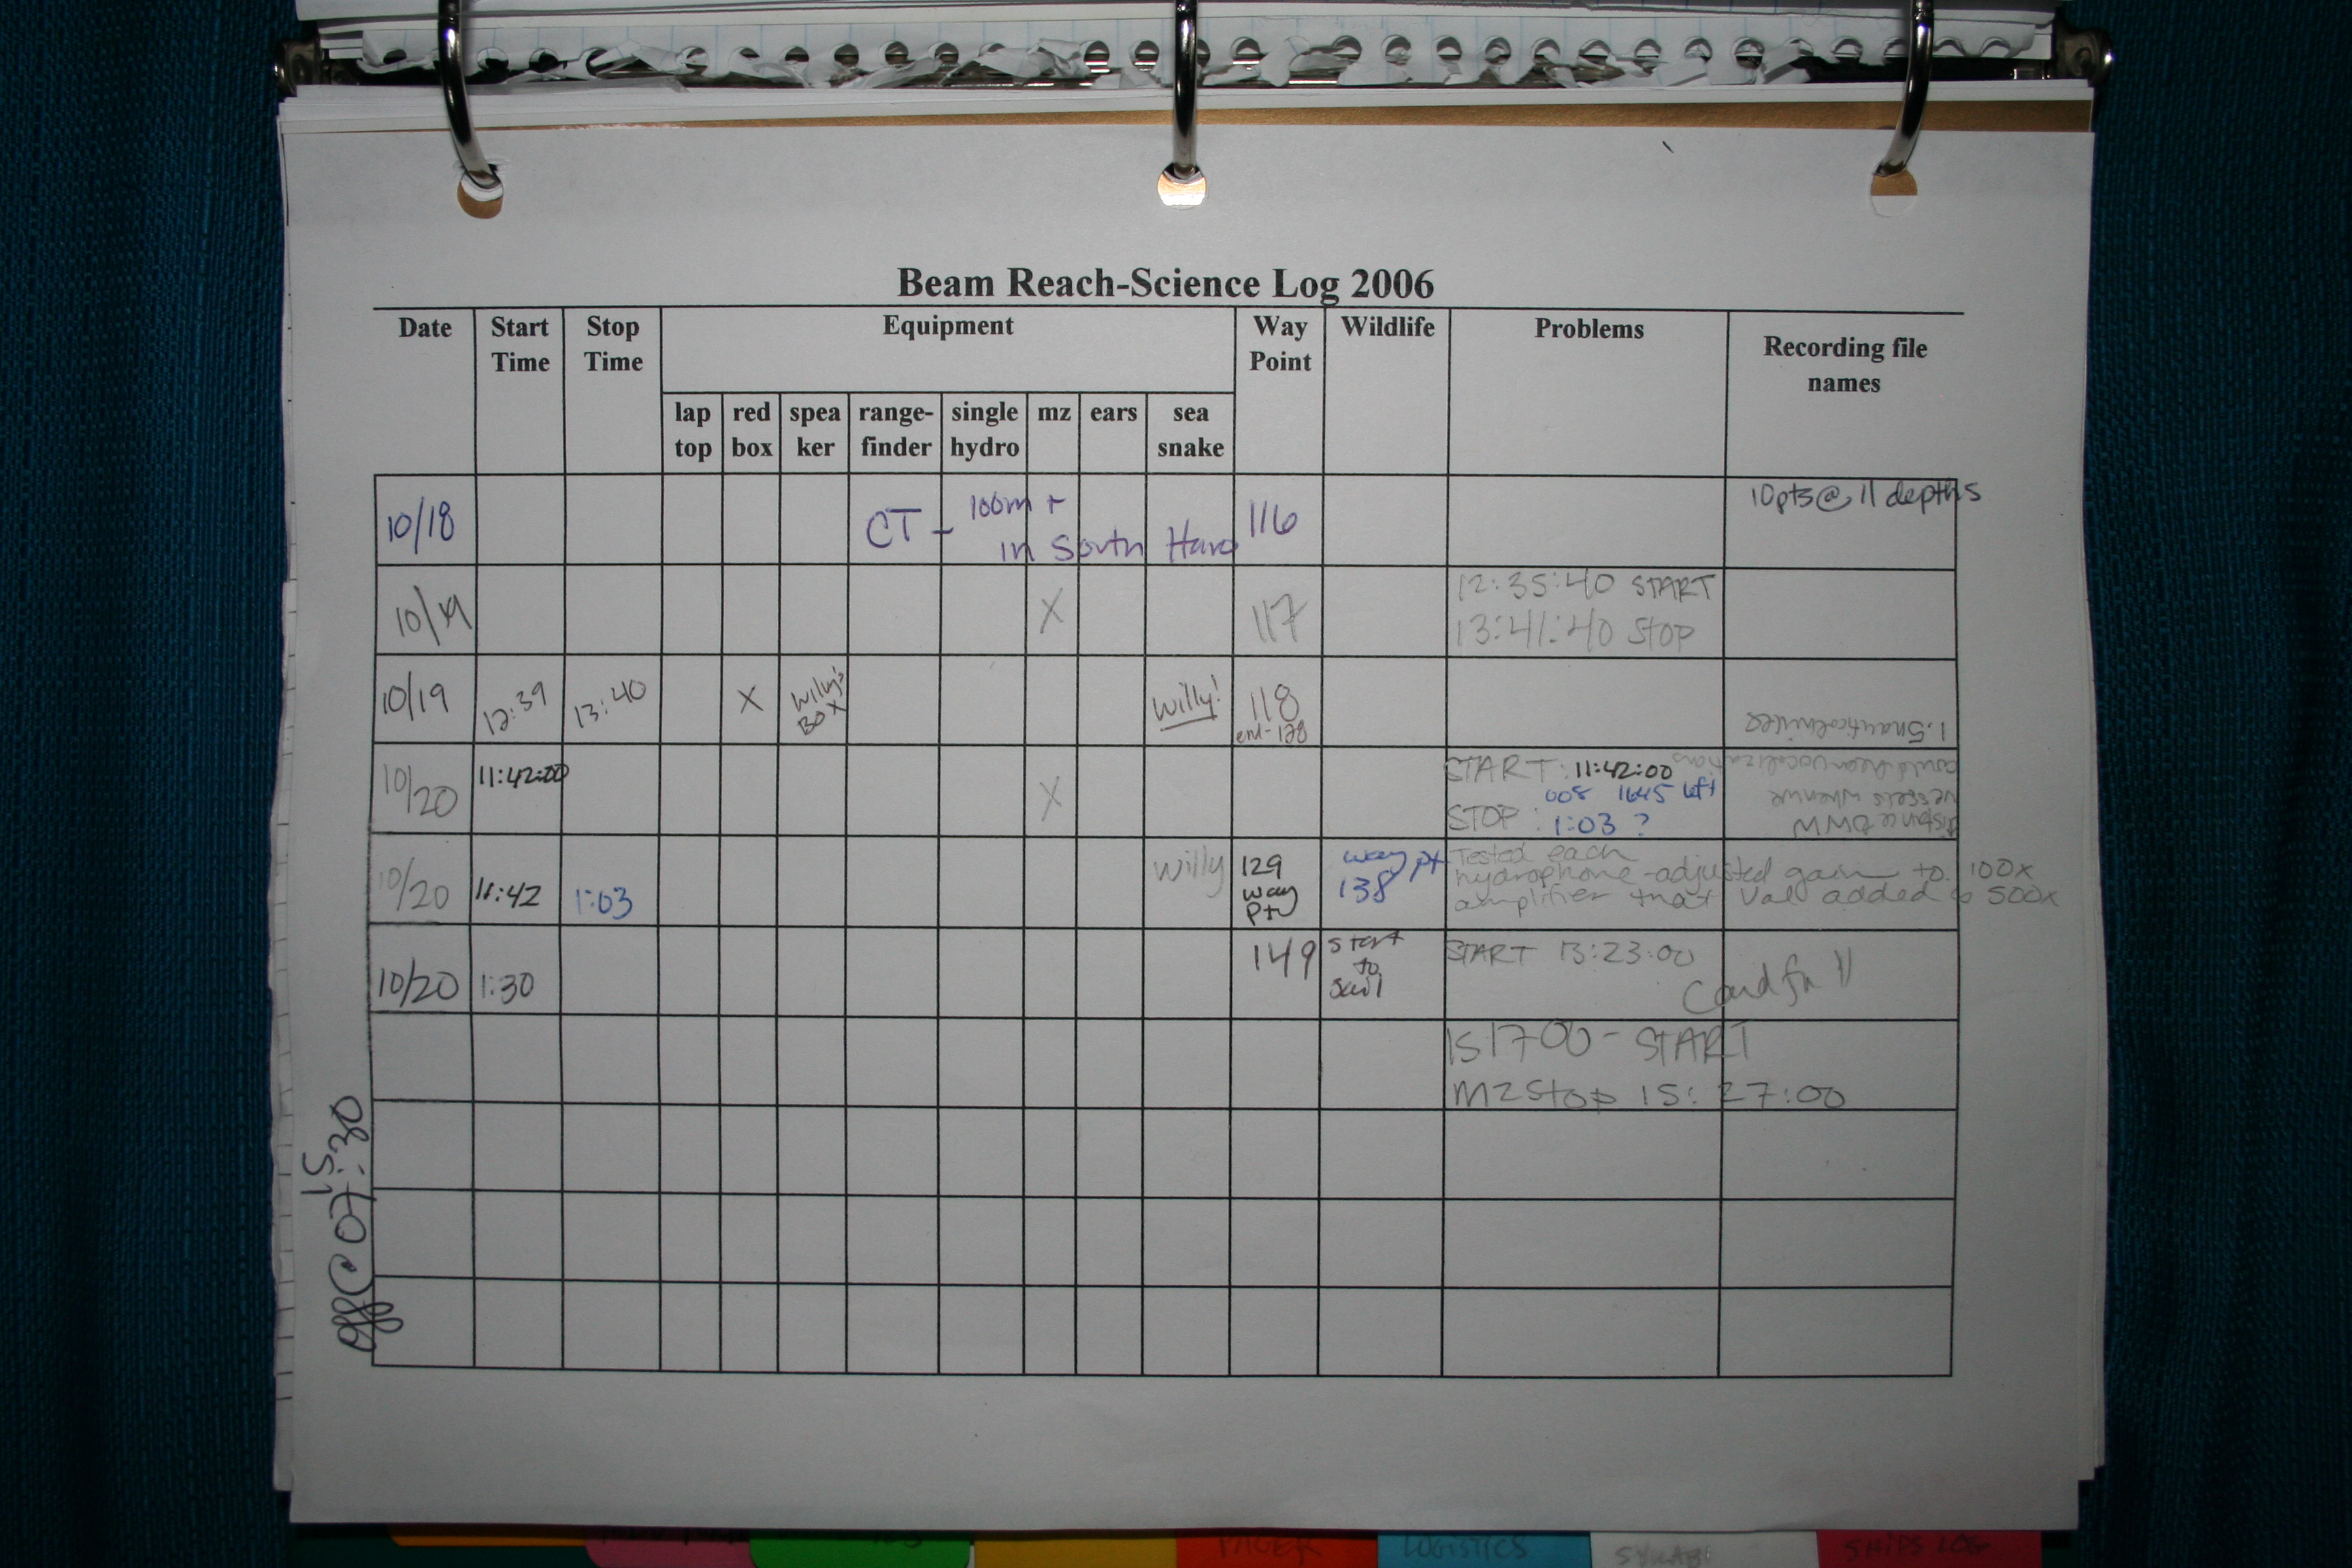 Beam Reach-Science Log 2006
Date Start Time Stop Time Equipment Way Point Wildlife Problems Recording file names
lap top red box spea ker range-finder single hydro mz ears sea snake
10/18 CT - 100m + in South Haro 116 10pts@ 11 depths
10/19 X 117 12:35:40 START
13:41:40 STOP
10/19 12:39 13:40 X Willy's Box Willy! 118
end-128
1.5nauticalmiles
10/20 11:42:00 X START: 11:42:00
008 1645 left
STOP: 1:03 ?
distance btwn
vessels when we
could hear vocalizations
10/20 11:42 1:03 Willy 129 way pt way pt 138 Tested each
hydrophone-adjusted gain to 100x
amplifier that Val added 500x
10/20 1:30 149 start to sail START 13:23:00
Card full
151700 - START
MZ Stop 15:27:00
off@ 07:30
15
LOGISTICS
SHIPS LOG